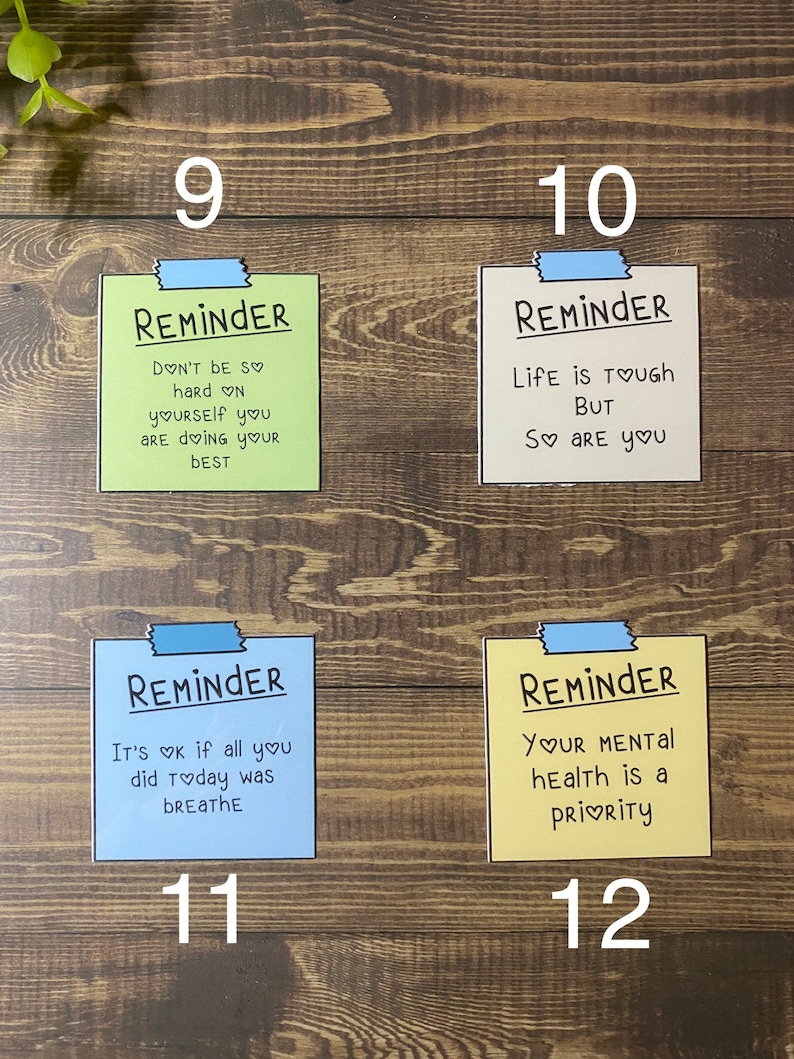 9
10
REMINdER
DON'T BE SO
hard ON
yOURSElf yOU
aRE dOING yOUR
bEST
REMINdER
LifE is TOUGh
BUT
SO aRE yOU
REMINdER
IT'S OK if all yOU
did TOday was
bREaThE
REMINdER
YOUR MENTal
hEalTh is a
pRiORiTy
11
12